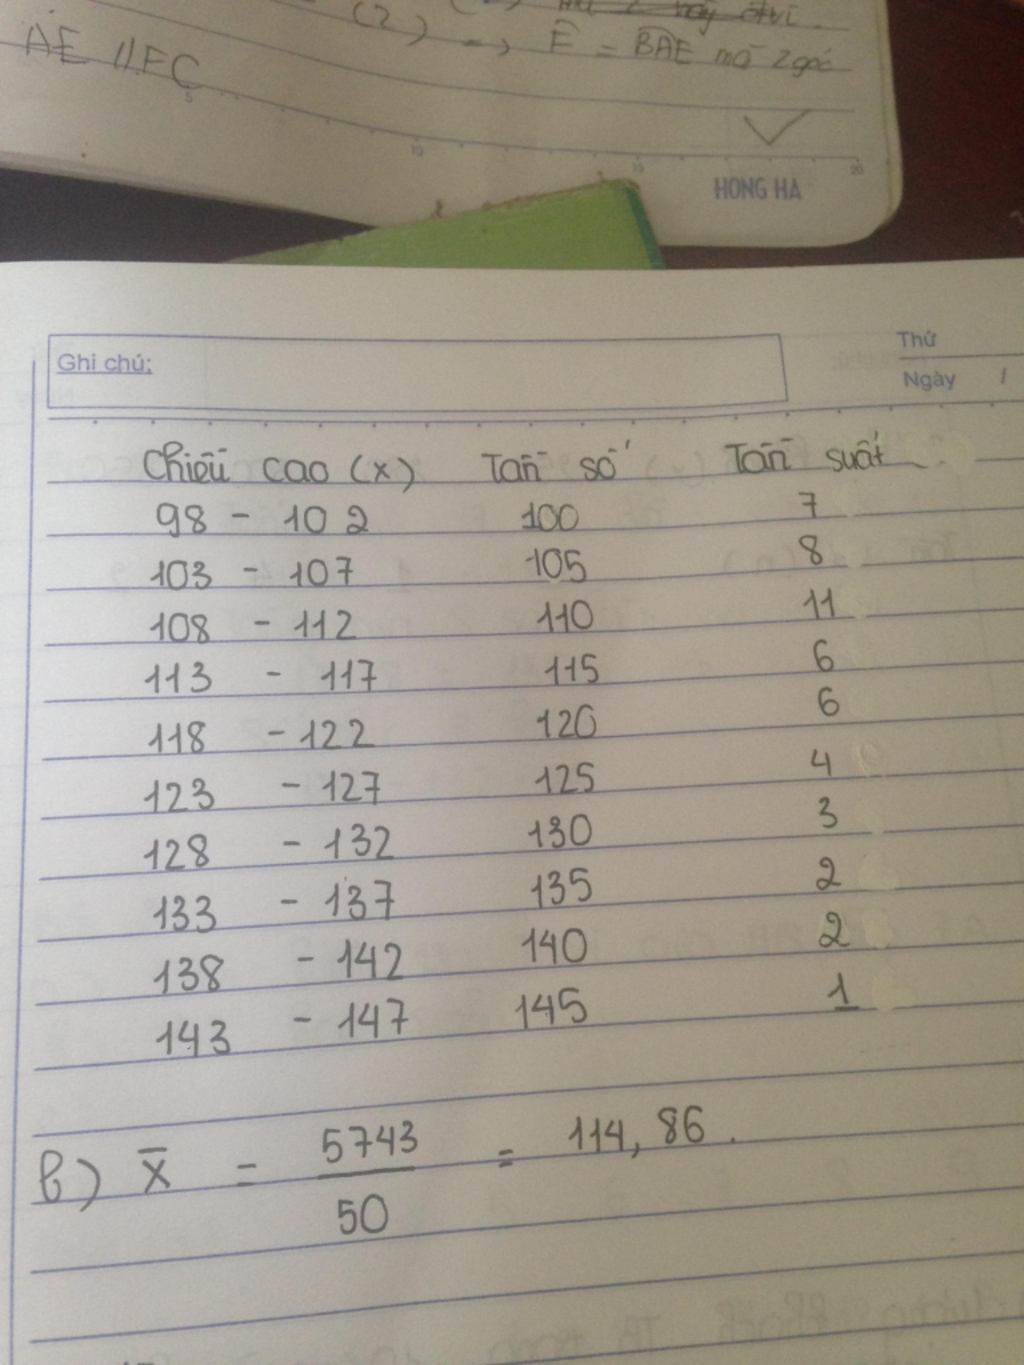 (2) => Ê = BAE mà 2 góc
AE // FC
5 10 15 20
HONG HA
Ghi chú:
Thứ
Ngày /
Chiều cao (x) Tần số Tần suất
98 - 102 100 7
103 - 107 105 8
108 - 112 110 11
113 - 117 115 6
118 - 122 120 6
123 - 127 125 4
128 - 132 130 3
133 - 137 135 2
138 - 142 140 2
143 - 147 145 1
b) X̄ = 5743/50 = 114,86.